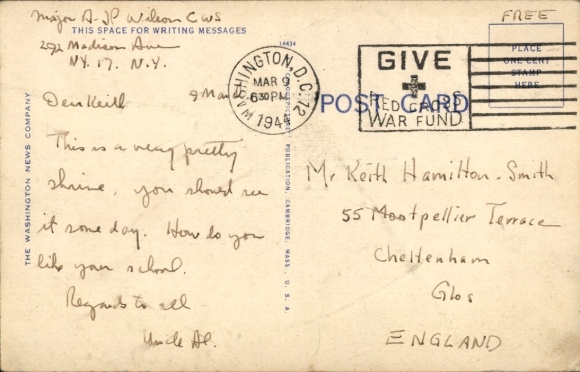 Major A. JP Wilson CWS
THIS SPACE FOR WRITING MESSAGES
292 Madison Ave
N.Y. 17. N.Y.
Dear Keith 9 Mar
This is a very pretty
shrine, you should see
it some day. How do you
like your school.
Regards to all
Uncle Al.
THE WASHINGTON NEWS COMPANY
14434
PUBLICATION, CAMBRIDGE, MASS., U. S. A.
WASHINGTON, D.C. 72
MAR 9
630PM
1944
GIVE
RED CROSS
WAR FUND
POST CARD
FREE
PLACE
ONE CENT
STAMP
HERE
Mr Keith Hamilton-Smith
55 Montpellier Terrace
Cheltenham
Glos
ENGLAND